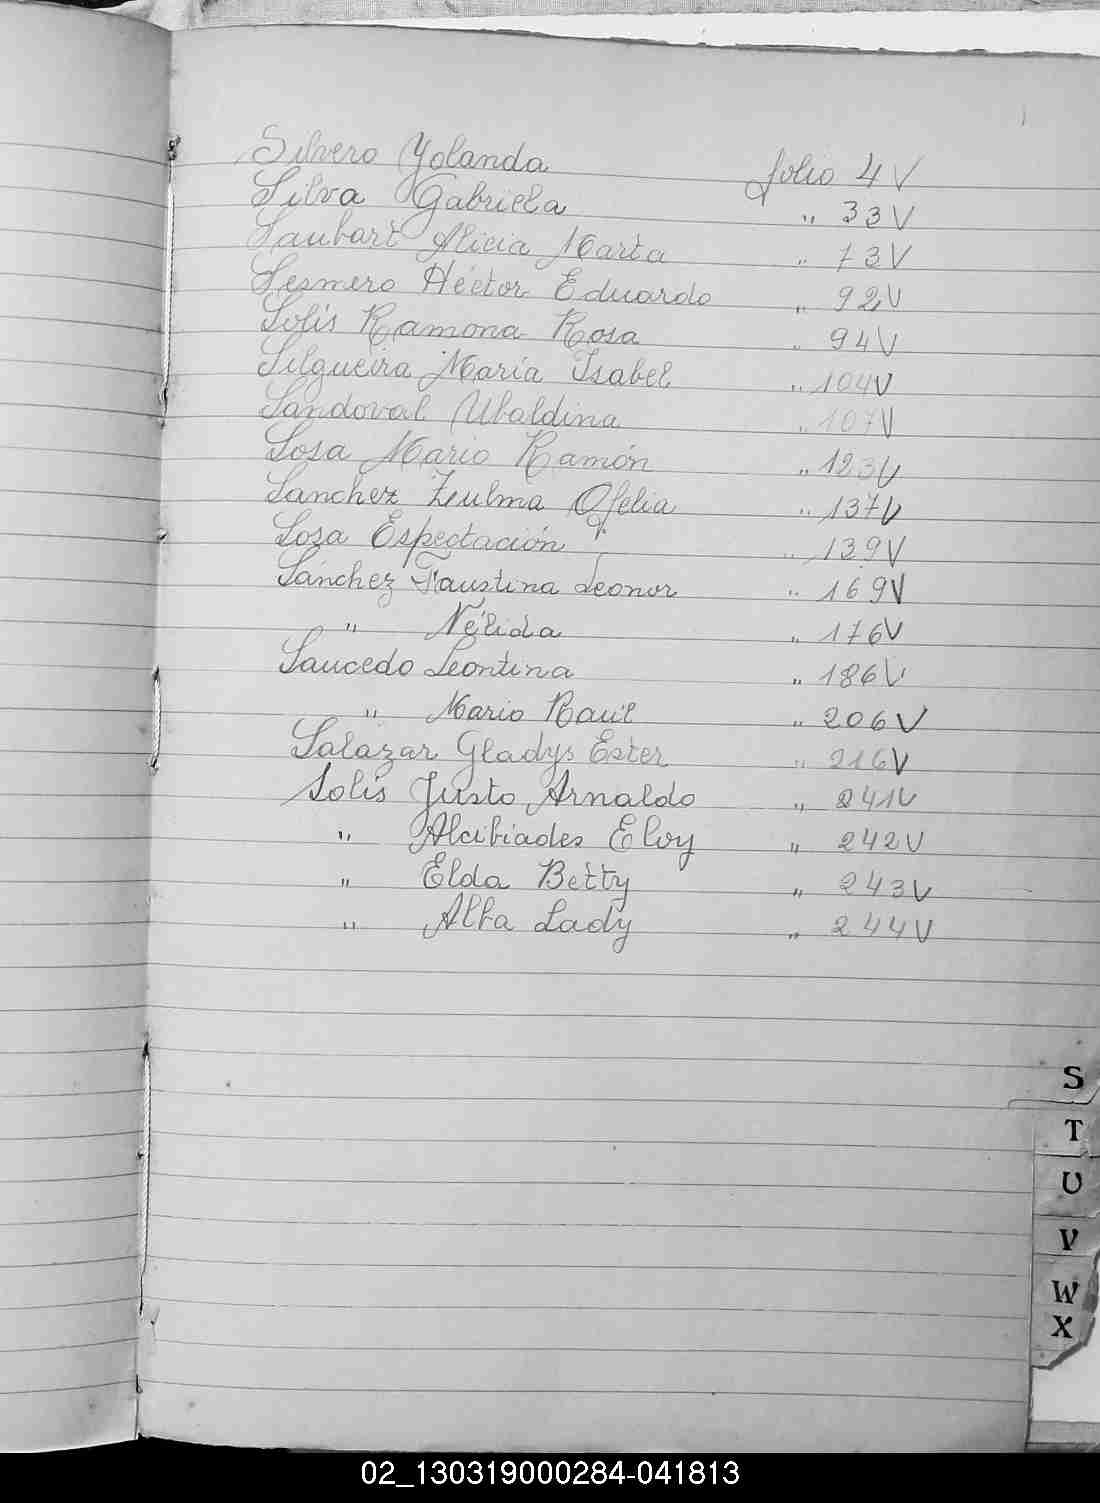 Silvero Yolanda folio 4 V
Silva Gabriela " 33 V
Saubart Alicia Marta " 73 V
Sesmero Héctor Eduardo " 92 V
Solís Ramona Rosa " 94 V
Silgueira María Isabel " 104 V
Sandoval Ubaldina " 107 V
Sosa Mario Ramón " 123 V
Sanchez Zulma Ofelia " 137 V
Sosa Espectación " 139 V
Sánchez Faustina Leonor " 169 V
" Nélida " 176 V
Saucedo Leontina " 186 V
" Mario Raúl " 206 V
Salazar Gladys Ester " 216 V
Solís Justo Arnaldo " 241 V
" Alcibiades Eloy " 242 V
" Elda Betty " 243 V
" Alba Lady " 244 V
S
T
U
V
W
X
02_130319000284-041813